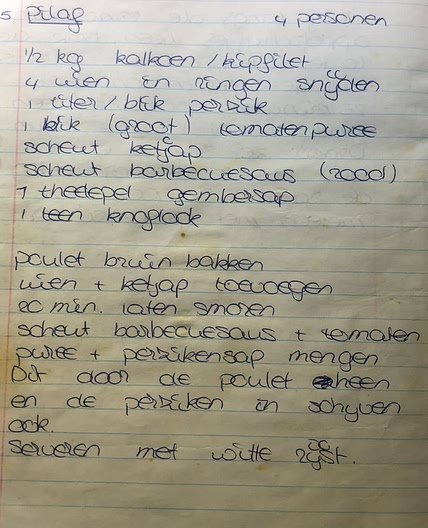 5 Pilaf 4 personen
1/2 kg kalkoen/kipfilet
4 uien in ringen snijden
1 liter/blik perzik
1 blik (groot) tomatenpuree
scheut ketjap
scheut barbecuesaus (rood)
1 theelepel gembersap
1 teen knoflook
poulet bruin bakken
uien + ketjap toevoegen
20 min. laten smoren
scheut barbecuesaus + tomaten
puree + perzikensap mengen
Dit door de poulet heen
en de perziken in schijven
ook.
Serveren met witte rijst.